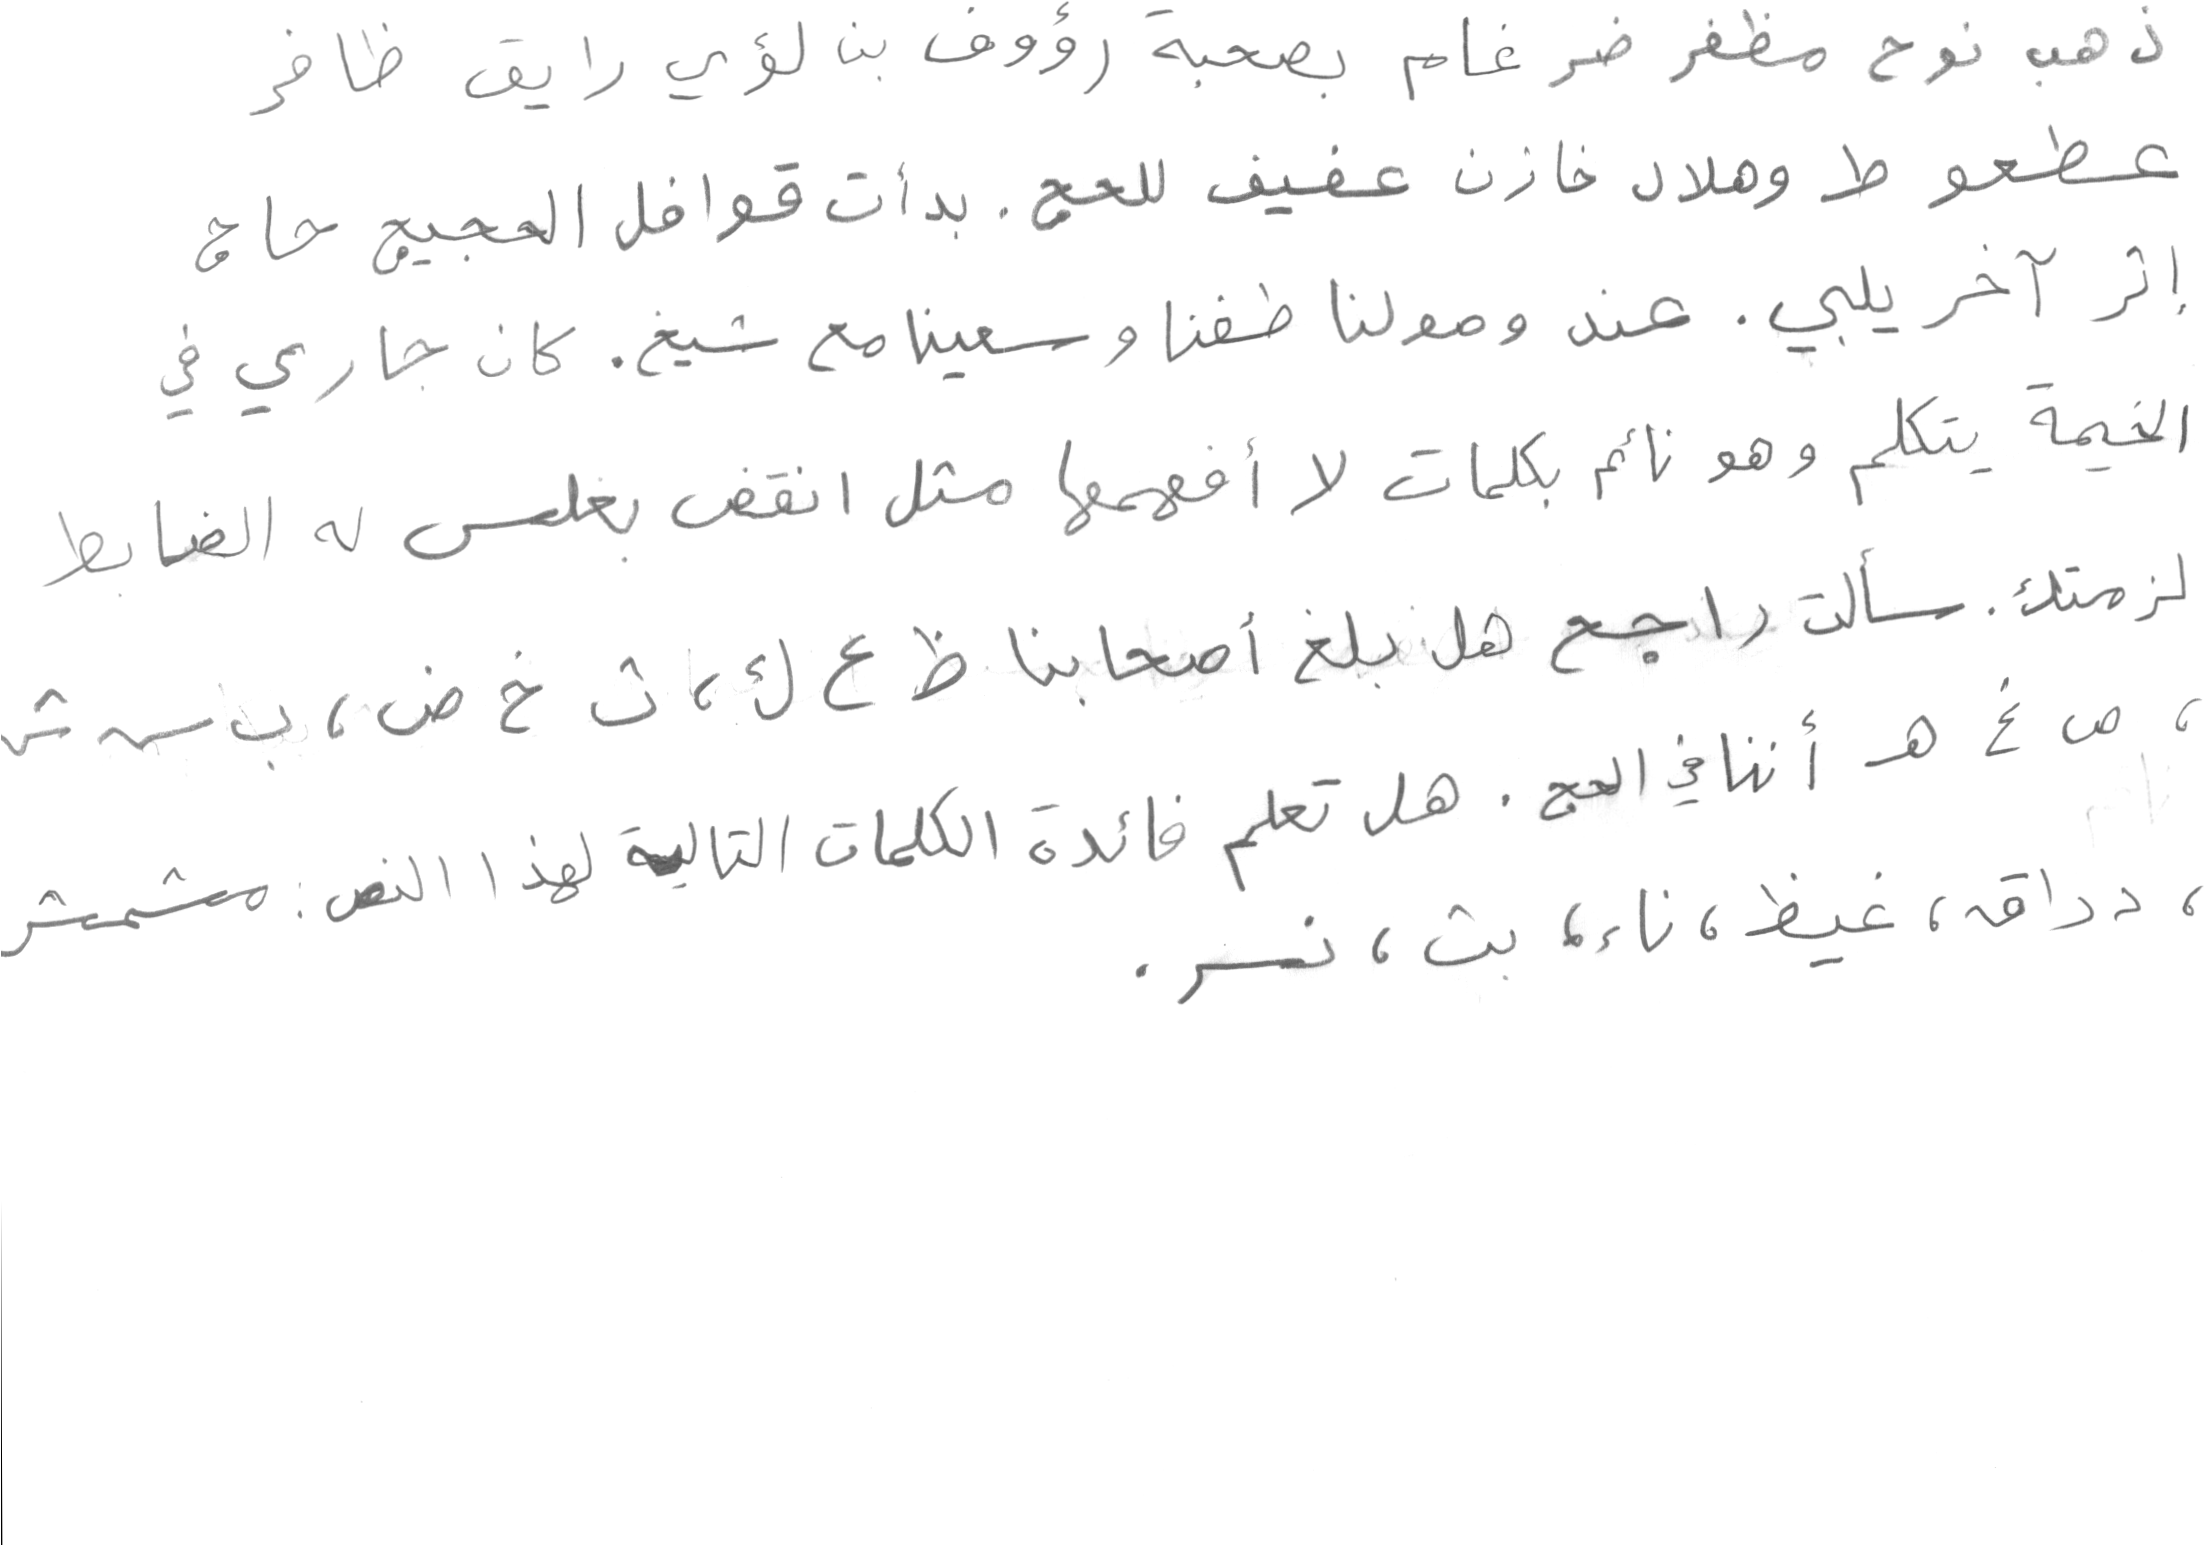 ذهب نوح مظفر ضرغام بصحبة رؤوف بن لؤي رايق ظافر
عطعوط وهلال خازن عفيف للحج. بدأت قوافل الحجيج حاج
إثر آخر يلبي. عند وصولنا طفنا وسعينا مع شيخ. كان جاري في
الخيمة يتكلم وهو نائم بكلمات لا أفهمها مثل انقض بغلس له الضابط
لزمتك. سألت راجح هل بلغ أصحابنا ظ ع ك، ث خ ض، ب س ش
، ص غ هـ أننا في الحج. هل تعلم فائدة الكلمات التالية لهذا النص: مشمش
، دراق، غيظ، ناء، بث، نسر.